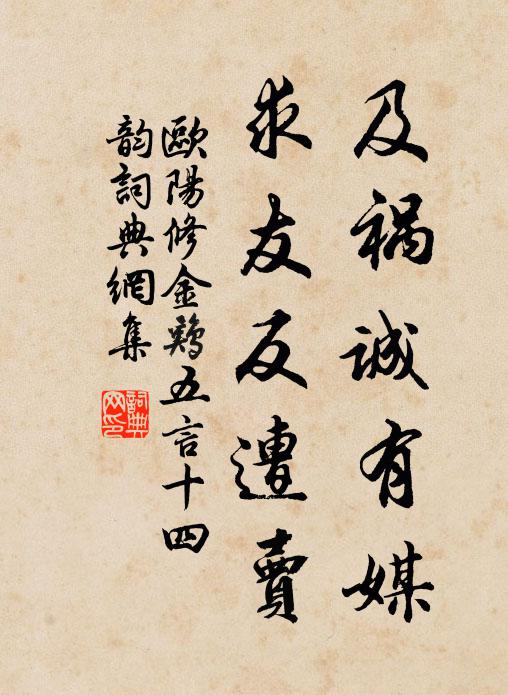 及祸诚有媒
求友反遭賣
歐陽修金鷄五言十四
韵詞典網集
詞典网印